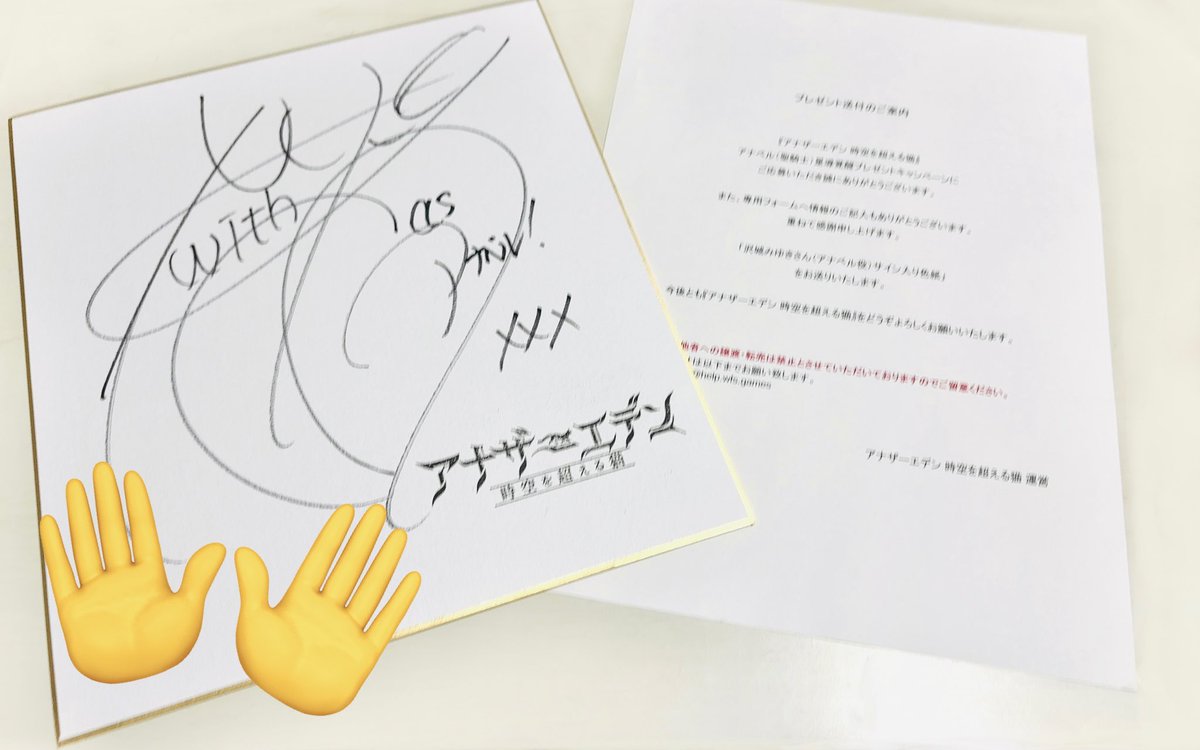 with
as
xxx
アナザーエデン
時空を超える猫
プレゼント送付のご案内
『アナザーエデン 時空を超える猫』
アナベル(聖騎士)星導覚醒プレゼントキャンペーンに
ご応募いただき誠にありがとうございます。
また、専用フォームへ情報のご記入もありがとうございます。
重ねて感謝申し上げます。
「沢城みゆきさん(アナベル役)サイン入り色紙」
をお送りいたします。
今後とも『アナザーエデン 時空を超える猫』をどうぞよろしくお願いいたします。
他者への譲渡・転売は禁止とさせていただいておりますのでご留意ください。
は以下までお願い致します。
help.wfs.games
アナザーエデン 時空を超える猫 運営